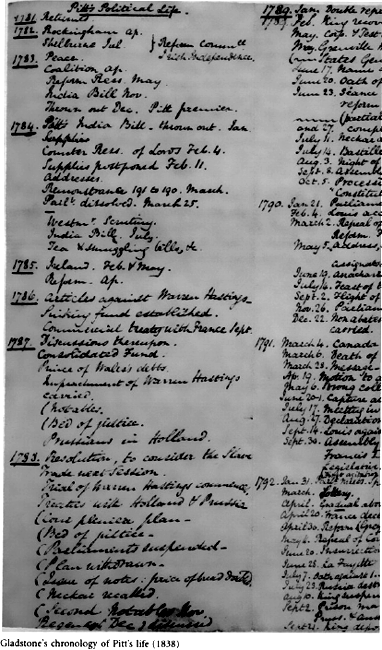 Pitt's Political Life.
1781. Reliments
1782. Rockingham ap.
Shelburne Jul. } Reform committ
Irish Independence.
1783. Peace.
Coalition ap.
Reform Ress. May
India Bill Nov.
Thrown out Dec. Pitt premier.
1784. Pitts India Bill - thrown out. Jan.
Supplies
Counter Ress. of Lords Feb. 4.
Supplies postponed Feb. 11.
Addresses.
Remonstrance 191 to 190. March.
Parlt dissolved. March 25.
Westmr. Scrutiny.
India Bill, July.
Tea & smuggling bills, &c
1785. Ireland. Feb. & May.
Reform Ap.
1786. Articles against Warren Hastings
Sinking fund established.
Commercial treaty with France Sept.
1787. Discussions thereupon.
Consolidated Fund.
Prince of Wales's debts.
Impeachment of Warren Hastings
carried.
(Notables.
(Bed of justice.
Prussians in Holland.
1788. Resolution, to consider the Slave
Trade next Session.
Trial of Warren Hastings commence,
Treaties with Holland & Prussia
(Cour pleniere plan -
(Bed of justice -
(Parliaments suspended -
(Plan withdrawn -
(Issue of notes: price of bread
(Necker recalled.
(Second Notables Nov.
Regency Dec.
1789. Jan.
Feb. King recov
May. Corp. & Test
May. Grenville
States Gene
June 17. Name
June 20. Oath of
June 23. Seance
reform
(partial
and 27.
July 11. Neckar
July 14. Bastille
Aug. 3. Night of
Sept. 8. Assembl
Oct. 5. Process
Constitut
1790. Jan 21. Parliam
Feb. 4. Louis acc
March 2. Repeal of
Reform.
May 5. Address,
assignats
June 19. anachars
July 14. Feast of
Sept. 2. Flight of
Nov. 26. Parliam
Dec. 22. Non abatem
carried.
1791. March 4. Canada
March 6. Death of
March 28. Message -
Ap. 19. Motion to a
May 6. Wrong coll
June 20. Capture a
July 17. Meeting in
Aug. 27. Declaration
Sept. 14. Louis again
Sept. 30. Assembly
Francis
Legislative
1792. Jan. 31.
March.
April. Gradual abo
April 20. France decl
April 30. Reform
May 6. Repeal of
June 20. Insurrection
June 28. La Fayette
July 7. Oath against
July 23. Prussia decl
Aug. 10. King suspen
Sept 2. Prison ma
Pruss. & Aus
Sept 21. King depo
Gladstone's chronology of Pitt's life (1838)